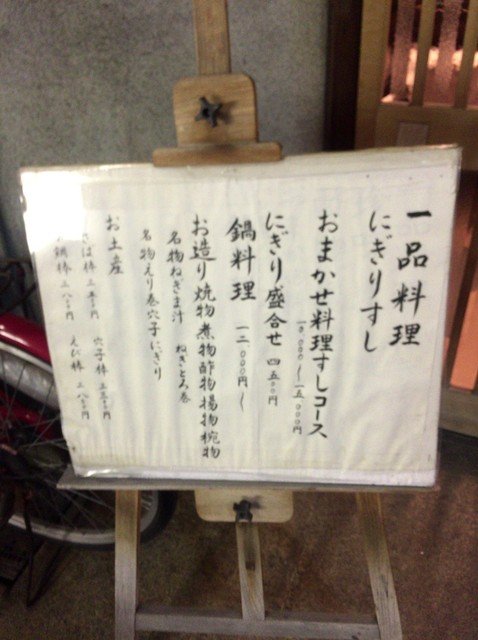 一品料理
にぎりすし
おまかせ料理すしコース
一〇、〇〇〇〜一五、〇〇〇円
にぎり盛合せ 四五〇〇円
鍋料理 一二、〇〇〇円〜
お造り 焼物 煮物 酢物 揚物 椀物
名物ねぎま汁 ねぎとろ巻
名物えり巻穴子にぎり
お土産
さば棒 穴子棒
鯛棒 えび棒